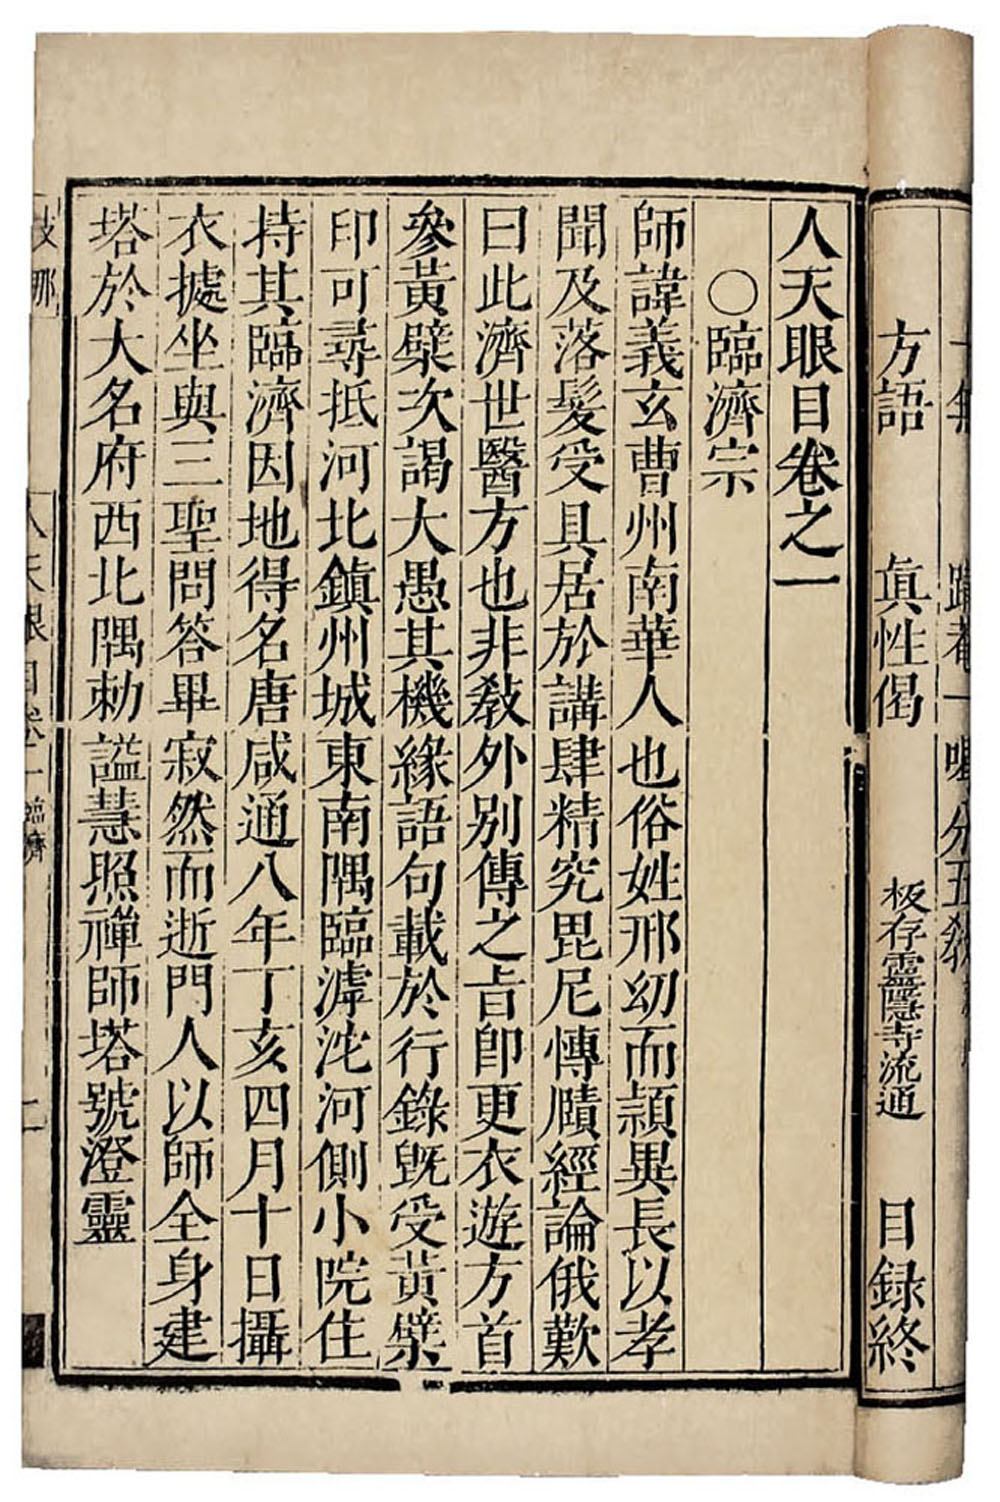 方語　眞性偈　板存靈隱寺流通　目録終
人天眼目卷之一
○臨濟宗
師諱義玄曹州南華人也俗姓邢幼而頴異長以孝
聞及落髮受具居於講肆精究毘尼慱賾經論俄歎
曰此濟世醫方也非敎外別傳之㫖卽更衣遊方首
參黃檗次謁大愚其機緣語句載於行錄旣受黃檗
印可尋抵河北鎭州城東南隅臨滹沱河側小院住
持其臨濟因地得名唐咸通八年丁亥四月十日攝
衣據坐與三聖問答畢寂然而逝門人以師全身建
塔於大名府西北隅勅謚慧照禪師塔號澄靈